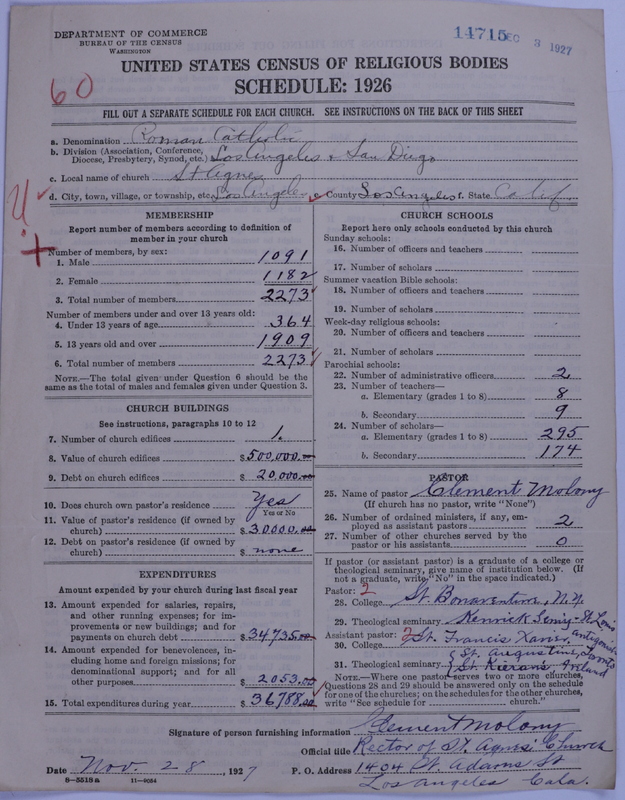 DEPARTMENT OF COMMERCE
BUREAU OF THE CENSUS
WASHINGTON
14715 DEC 3 1927
UNITED STATES CENSUS OF RELIGIOUS BODIES
SCHEDULE: 1926
60
FILL OUT A SEPARATE SCHEDULE FOR EACH CHURCH. SEE INSTRUCTIONS ON THE BACK OF THIS SHEET
a. Denomination Roman Catholic
b. Division (Association, Conference,
Diocese, Presbytery, Synod, etc.) Los Angeles & San Diego
c. Local name of church St Agnes
d. City, town, village, or township, etc. Los Angeles e. County Los Angeles f. State Calif
MEMBERSHIP
Report number of members according to definition of
member in your church
Number of members, by sex:
1. Male 1091
2. Female 1182
3. Total number of members 2273
Number of members under and over 13 years old:
4. Under 13 years of age 364
5. 13 years old and over 1909
6. Total number of members 2273
NOTE.—The total given under Question 6 should be the
same as the total of males and females given under Question 3.
CHURCH BUILDINGS
See instructions, paragraphs 10 to 12
7. Number of church edifices 1.
8. Value of church edifices $500,000.00
9. Debt on church edifices $20,000.00
10. Does church own pastor's residence Yes
Yes or No
11. Value of pastor's residence (if owned by
church) $30000.00
12. Debt on pastor's residence (if owned by
church) $none
EXPENDITURES
Amount expended by your church during last fiscal year
13. Amount expended for salaries, repairs,
and other running expenses; for im-
provements or new buildings; and for
payments on church debt $34,735.00
14. Amount expended for benevolences, in-
cluding home and foreign missions; for
denominational support; and for all
other purposes $2053.00
15. Total expenditures during year $36,788.00
CHURCH SCHOOLS
Report here only schools conducted by this church
Sunday schools:
16. Number of officers and teachers
17. Number of scholars
Summer vacation Bible schools:
18. Number of officers and teachers
19. Number of scholars
Week-day religious schools:
20. Number of officers and teachers
21. Number of scholars
Parochial schools:
22. Number of administrative officers 2
23. Number of teachers—
a. Elementary (grades 1 to 8) 8
b. Secondary 9
24. Number of scholars—
a. Elementary (grades 1 to 8) 295
b. Secondary 174
PASTOR
25. Name of pastor Clement Molony
(If church has no pastor, write "None")
26. Number of ordained ministers, if any, em-
ployed as assistant pastors 2
27. Number of other churches served by the
pastor or his assistants 0
If pastor (or assistant pastor) is a graduate of a college or
theological seminary, give name of institution below. (If
not a graduate, write "No" in the space indicated.)
Pastor: 2
28. College St. Bonaventure, N.Y.
29. Theological seminary Kenrick Semiy - St Louis
Assistant pastor: 2 St. Francis Xavier, Antigonish
30. College St. Augustine, Toronto
31. Theological seminary St Kierans Ireland
NOTE.—Where one pastor serves two or more churches,
Questions 28 and 29 should be answered only on the schedule
for one of the churches; on the schedules for the other churches,
write "See schedule for church."
Signature of person furnishing information Clement Molony
Official title Rector of St. Agnes' Church
Date Nov. 28, 1927 P. O. Address 1404 W. Adams St
Los Angeles Cala.
8-5518a 11-9084